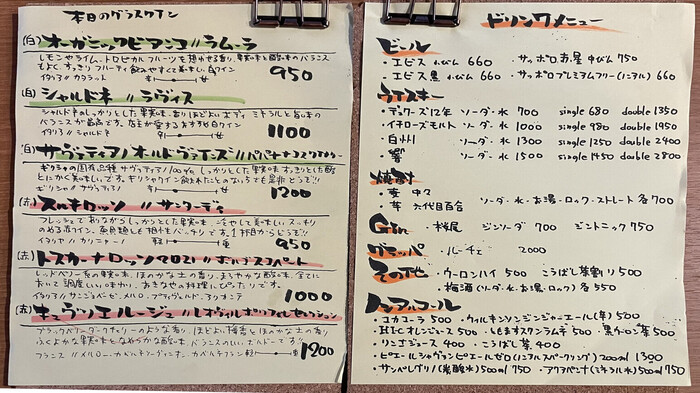 本日のグラスワイン
(白) オーガニックビアンコ // ラムーラ
レモンやライム、トロピカルフルーツを想わせる香り、果実味と酸味のバランス
もよく すっきり フルーティ 飲みやすくて美味しい白ワイン
イタリア // カタラット
950
(白) シャルドネ // ラヴィス
シャルドネのしっかりとした果実味、香りほどよいボディ ミネラルと旨味の
バランスが最高です。店主が愛するおすすめ白ワイン
イタリア // シャルドネ
1100
(白) サヴァティアノ オールドヴァインズ // パパイアナコス
ギリシャの固有品種 サヴァティアノ100% しっかりとした果実味 すっきりとした酸
とにかく美味しいです。ギリシャワイン飲まれたことのない方でも是非どうぞ!!
ギリシャ // サヴァティアノ
1200
(赤) スルキロッソ // サンターディ
フレッシュでありながら しっかりとした果実味、
のめる赤ワイン、魚料理とも相性バッチリです。1杯目からどうぞ!
イタリア // カリニャーノ
軽 重
950
(赤) トスカーナロッソ
レッドベリー系の果実味、ほのかな土の香り、まろやかな酸味、全てに
おいて調度いい。味わい、お肉などの料理にぴったりです。
イタリア // サンジョベーゼ、メルロ、プティヴェルド、アリカンテ
1000
(赤) キュヴァツエルージュ //
ブラックベリー、ダークチェリーのような香り、ほどよい樽香とほのかな土の香り
ふくよかな果実味となめらかな酸味、バランスのいいボルドーです!!
フランス // メルロー、カベルネソーヴィニヨン、カベルネフラン
軽 重
1200
ドリンクメニュー
ビール
・エビス 小びん 660 ・サッポロ赤星 中びん 750
・エビス黒 小びん 660 ・サッポロプレミアムフリー(ノンアル) 660
ウイスキー
・デュワーズ12年 ソーダ・水 700 single 680 double 1350
・イチローズモルト ソーダ・水 1000 single 980 double 1950
・白州 ソーダ・水 1300 single 1250 double 2400
・響 ソーダ・水 1500 single 1450 double 2800
焼酎
・麦 中々
・芋 六代目百合 ソーダ・水・お湯・ロック・ストレート 各700
Gin ・桜尾 ジンソーダ 700 ジントニック 750
グラッパ ・ルーチェ 2000
その他 ・ウーロンハイ 500 こうばし茶割り 500
・梅酒(ソーダ・水・お湯・ロック) 各550
ノンアルコール
・コカコーラ 500 ・ウィルキンソンジンジャーエール(辛) 500
・オレンジジュース 500 ・ともますスカンラムテ 500 ・黒ウーロン茶 500
・リンゴジュース 400 ・こうばし茶 400
・ピエールシャヴァンピエールゼロ(ノンアルスパークリング) 200ml 1300
・サンペレグリノ(炭酸水) 500ml 750 ・アクアパンナ(ミネラル水) 500ml 750